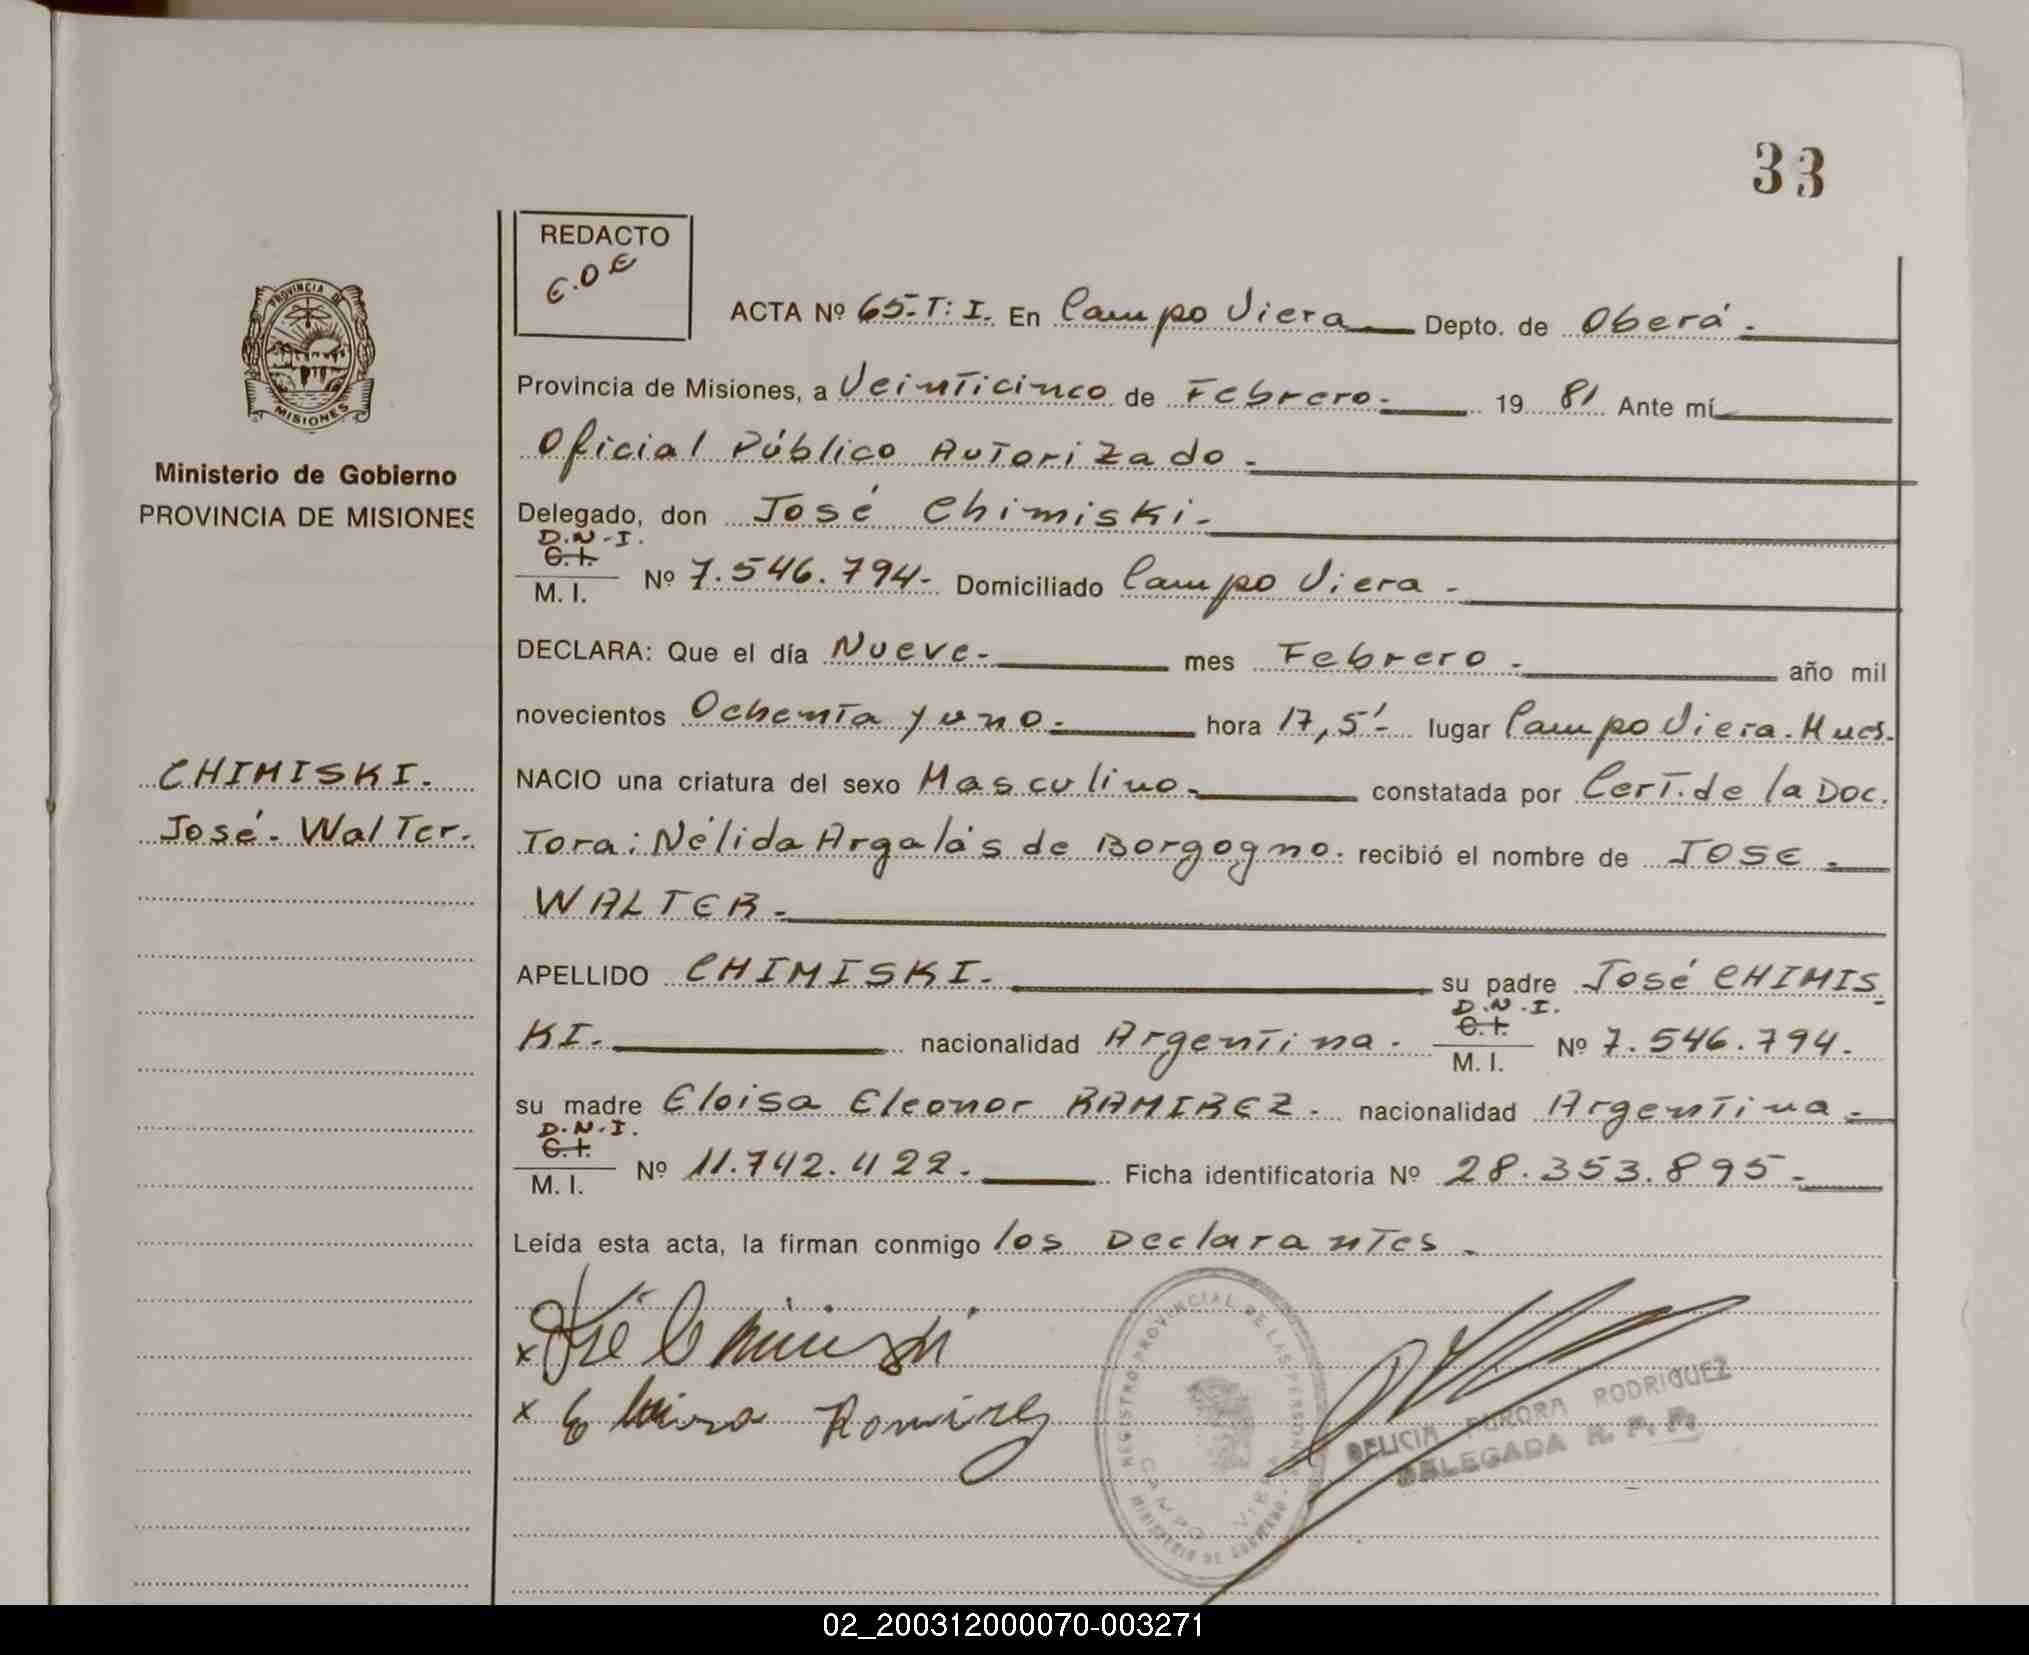 33
REDACTO
E.O.E
PROVINCIA DE
MISIONES
Ministerio de Gobierno
PROVINCIA DE MISIONES
CHIMISKI.
José-Walter.
ACTA Nº 65-T:I. En Campo Viera Depto. de Oberá.
Provincia de Misiones, a Veinticinco de Febrero. 19 81 Ante mí
Oficial Público Autorizado.
Delegado, don José Chimiski.
D.N.I.
C.I.
M. I. Nº 7.546.794- Domiciliado Campo Viera.
DECLARA: Que el día Nueve- mes Febrero. año mil
novecientos Ochenta y uno. hora 17,5'- lugar Campo Viera.
NACIO una criatura del sexo Masculino. constatada por Cert. de la Doc.
tora: Nélida Argalás de Borgogno. recibió el nombre de JOSE.
WALTER.
APELLIDO CHIMISKI. su padre José CHIMIS
D.N.I.
C.I.
KI. nacionalidad Argentina. M. I. Nº 7.546.794.
su madre Eloisa Eleonor RAMIREZ. nacionalidad Argentina.
D.N.I.
C.I.
M. I. Nº 11.742.422. Ficha identificatoria Nº 28.353.895.
Leída esta acta, la firman conmigo los Declarantes.
x José Chimiski
x Ramirez
REGISTRO PROVINCIAL DE LAS PERSONAS
CAMPO VIERA
MINISTERIO DE GOBIERNO
DELICIA AURORA RODRIGUEZ
DELEGADA R. P. P.
02_200312000070-003271